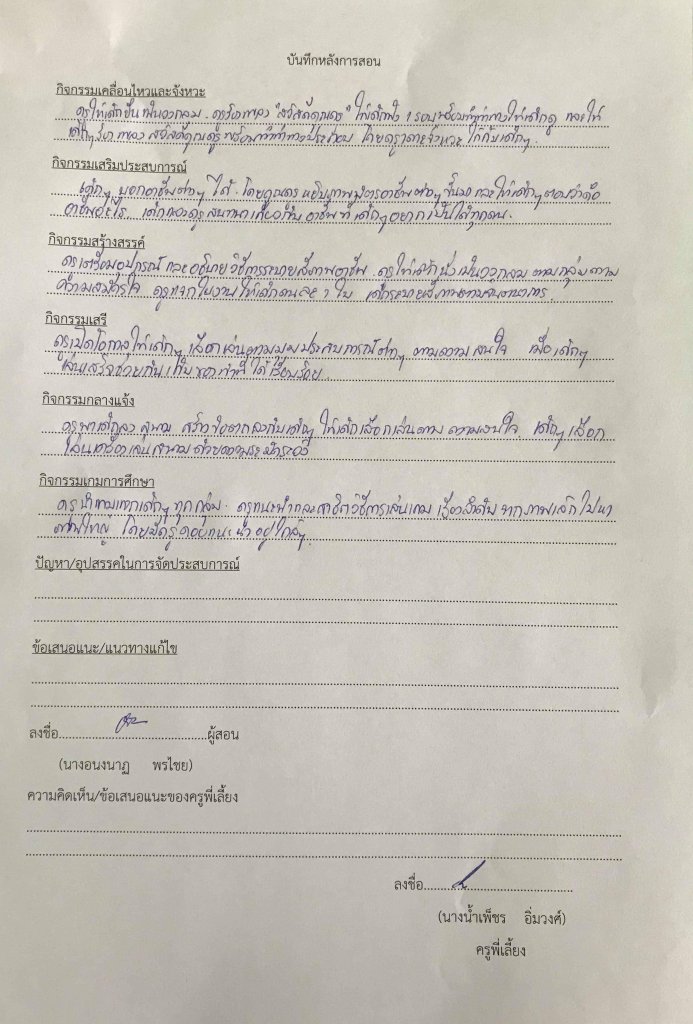 บันทึกหลังการสอน
กิจกรรมเคลื่อนไหวและจังหวะ
ครูให้เด็กยืนเป็นวงกลม ครูร้องเพลง "สวัสดีคุณครู" ให้เด็กฟัง 1 รอบพร้อมทำท่าทางให้เด็กดู และให้
เด็กๆร้องเพลง สวัสดีคุณครู พร้อมทำท่าทางประกอบ โดยครูเคาะจังหวะ ให้กับเด็กๆ.
กิจกรรมเสริมประสบการณ์
เด็กๆ บอกอาชีพต่างๆ ได้. โดยคุณครู หยิบภาพ อาชีพต่างๆ ขึ้นมา และให้เด็กๆตอบว่าคือ
อาชีพอะไร. เด็กและครูสนทนาเกี่ยวกับ อาชีพ ที่ เด็กๆอยากเป็นได้ทุกคน.
กิจกรรมสร้างสรรค์
ครูเตรียมอุปกรณ์ และอธิบายวิธีการระบายสีภาพอาชีพ. ครูให้เด็กนั่งเป็นวงกลม ตามกลุ่มตาม
ความสมัครใจ ครูแจกใบงานให้เด็กคนละ 1 ใบ เด็กระบายสีภาพตามจินตนาการ.
กิจกรรมเสรี
ครูเปิดโอกาสให้เด็กๆ เลือกเล่นตามมุมประสบการณ์ต่างๆ ตามความสนใจ เมื่อเด็กๆ
เล่นเสร็จช่วยกันเก็บของเข้าที่ ได้เรียบร้อย.
กิจกรรมกลางแจ้ง
ครูพาเด็กลง สนาม สร้างข้อตกลงกับเด็กๆ ให้เด็กเลือกเล่นตาม ความสนใจ. เด็กๆ เลือก
เล่นเครื่องเล่นสนามด้วยความระมัดระวัง
กิจกรรมเกมการศึกษา
ครูนำเกมแจกเด็กๆ ทุกกลุ่ม. ครูแนะนำและสาธิตวิธีการเล่นเกม เรียงลำดับ จากภาพเล็กไปหา
ภาพใหญ่ โดยมีครูคอยแนะนำอยู่ใกล้ๆ.
ปัญหา/อุปสรรคในการจัดประสบการณ์
ข้อเสนอแนะ/แนวทางแก้ไข
ลงชื่อ..........ผู้สอน
(นางอนงนาฏ พรไชย)
ความคิดเห็น/ข้อเสนอแนะของครูพี่เลี้ยง
ลงชื่อ..........
(นางน้ำเพ็ชร อิ่มวงศ์)
ครูพี่เลี้ยง